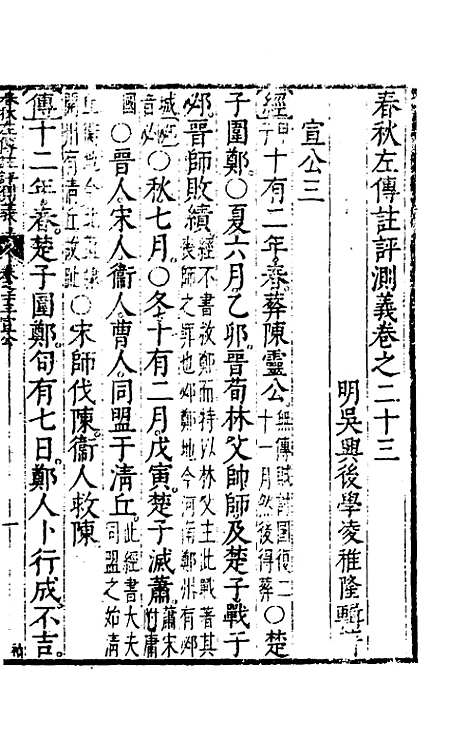 春秋左傳註評測義卷之二十三
明吳興後學凌稚隆輯
宣公三
經甲子十有二年春葬陳靈公無傳賊討國復二十一月然後得葬○楚
子圍鄭○夏六月乙卯晉荀林父帥師及楚子戰于
邲晉師敗績經不書救鄭而特以林父主此戰著喪師之罪也邲鄭地今河南鄭州有邲
城○秋七月○冬十有二月戊寅楚子滅蕭蕭宋附庸
國○晉人宋人衞人曹人同盟于清丘此經書大夫同盟之始清
有清丘○宋師伐陳衞人救陳
傳十二年春楚子圍鄭旬有七日鄭人卜行成不吉